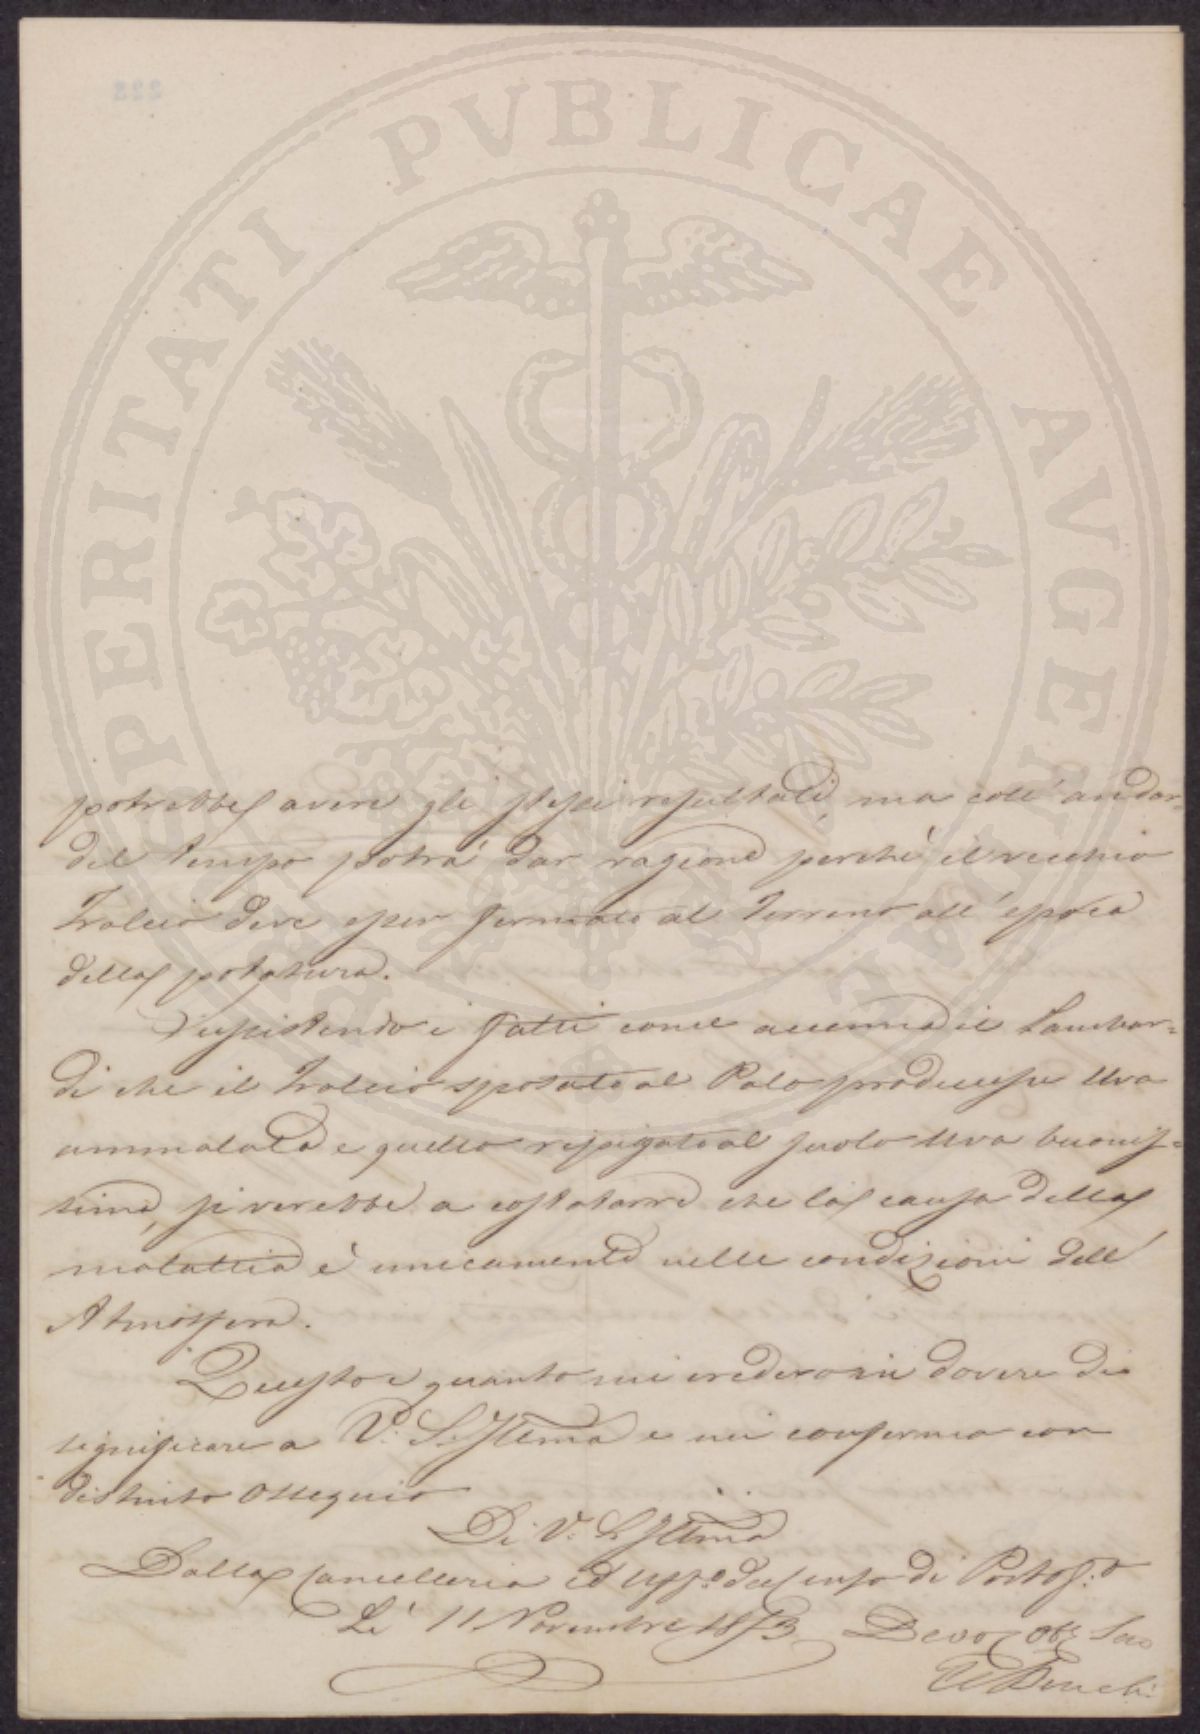 PROSPERITATI PVBLICAE AVGENDAE
potrebbesi avere gli stessi resultati, ma coll'andar
del tempo potrà dar ragione perchè il vecchio
Tralcio deve esser fermato al Terreno all'epoca
della potatura.
Sussistendo i fatti come accenna il Lambar=
di che il Tralcio sposato al Palo producesse Uva
ammalata e quello ripiegato al suolo Uva buonis=
sima, si verebbe a costatare che la causa della
malattia è unicamente nelle condizioni dell'
Atmosfera.
Questo è quanto mi credevo in dovere di
significare a V. S. Illma e mi confermo con
distinto ossequio
Di V. S. Illma
Dalla Cancelleria ed Uffo del Censo di Portofo
Lì 11 Novembre 1853 Devo Obb Seo